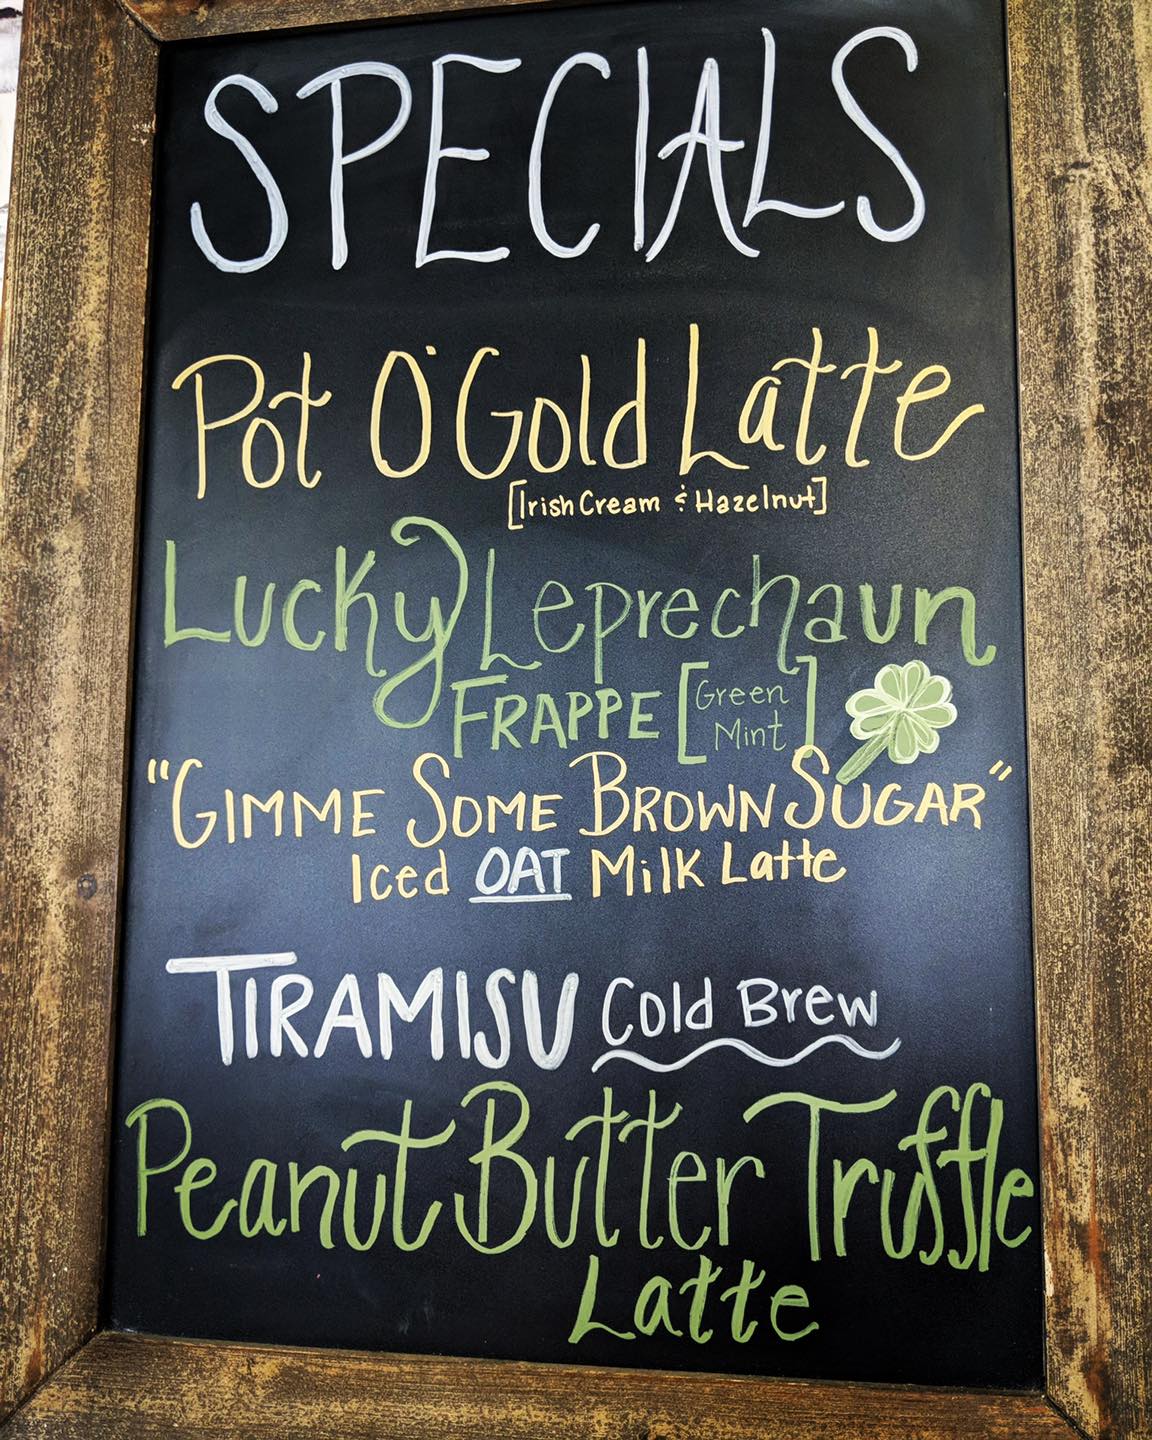 SPECIALS
Pot O'Gold Latte
[Irish Cream & Hazelnut]
Lucky Leprechaun
FRAPPE [Green
Mint]
"GIMME SOME BROWN SUGAR"
Iced OAT Milk Latte
TIRAMISU Cold Brew
Peanut Butter Truffle
Latte